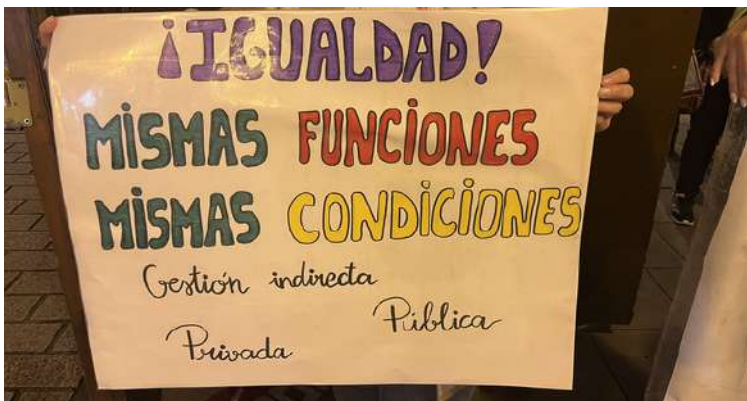 ¡IGUALDAD!
MISMAS FUNCIONES
MISMAS CONDICIONES
Gestión indirecta
Pública
Privada